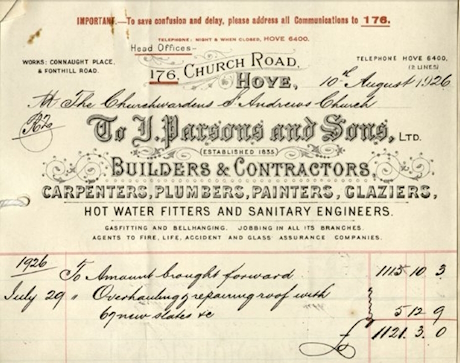 IMPORTANT.—To save confusion and delay, please address all Communications to 176.
TELEPHONE: NIGHT & WHEN CLOSED, HOVE 6400.
Head Offices-
WORKS: CONNAUGHT PLACE, & FONTHILL ROAD.
176, CHURCH ROAD,
HOVE,
TELEPHONE HOVE 6400,
(2 LINES)
10th August 1926
The Churchwardens St Andrews Church
To J. Parsons and Sons, LTD.
(ESTABLISHED 1835)
BUILDERS & CONTRACTORS
CARPENTERS, PLUMBERS, PAINTERS, GLAZIERS,
HOT WATER FITTERS AND SANITARY ENGINEERS.
GASFITTING AND BELLHANGING. JOBBING IN ALL ITS BRANCHES.
AGENTS TO FIRE, LIFE, ACCIDENT AND GLASS ASSURANCE COMPANIES.
1926
To Amount brought forward 1115 10 3
July 29 " Overhauling & repairing roof with
67 new slates &c 5 12 9
£ 1121. 3. 0